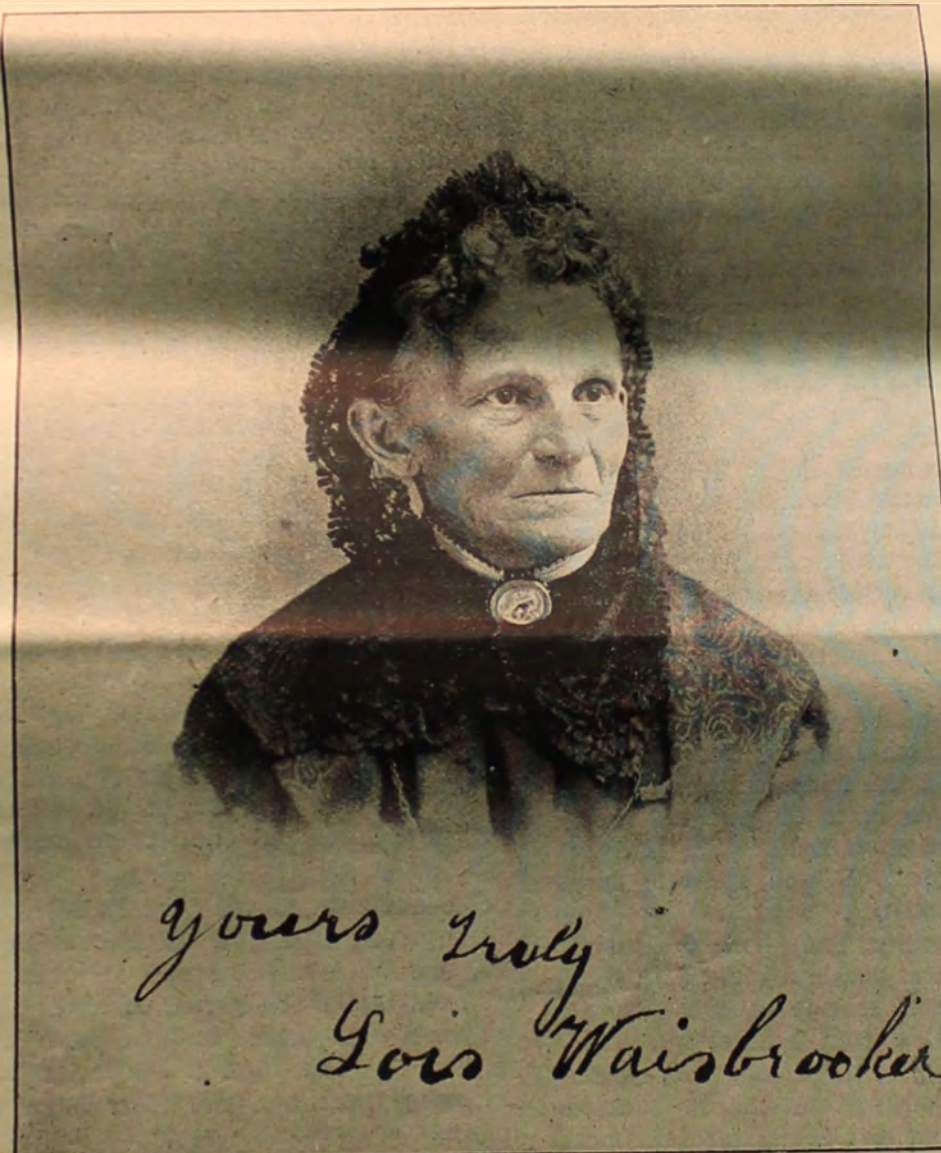 yours truly
Lois Waisbrooker